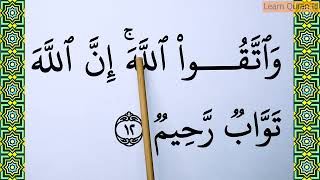 Learn Quran
وَٱتَّقُوا۟ ٱللَّهَ ۚ إِنَّ ٱللَّهَ
تَوَّابٌ رَّحِيمٌ ١٢